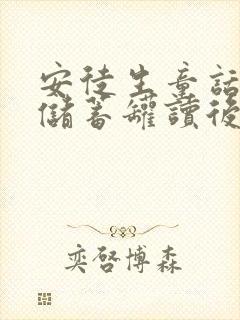 安徒生童話
儲蓄罐讀後
奕啓博森